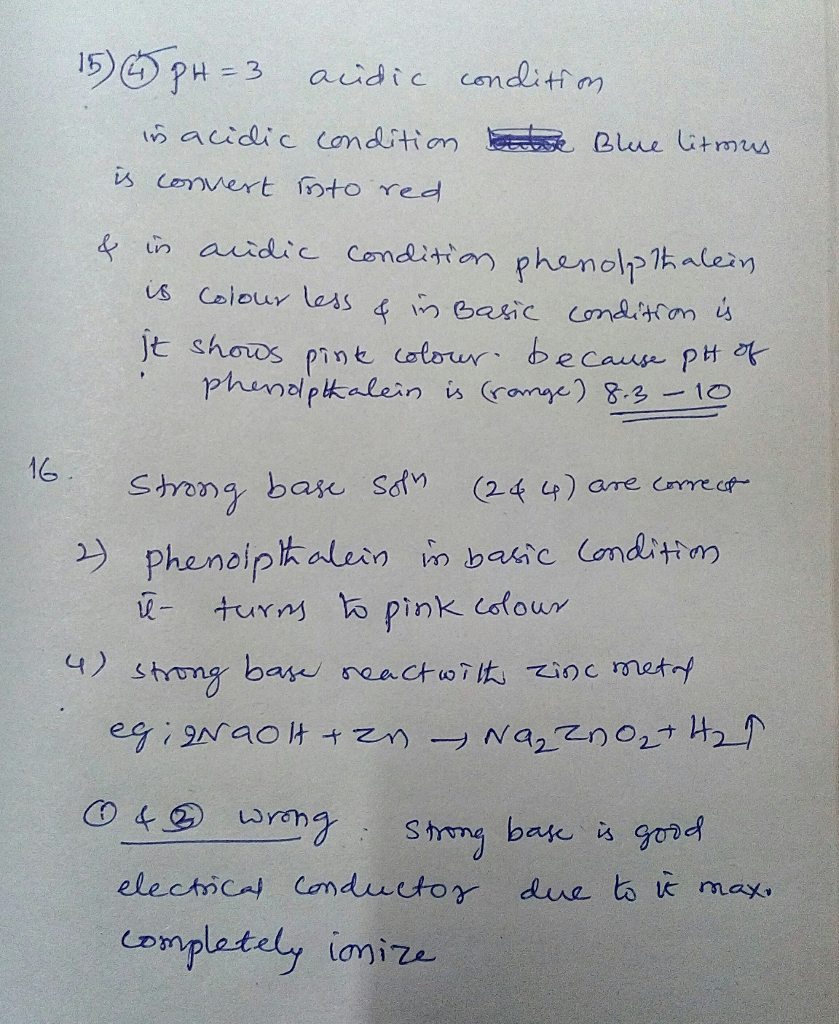 15) ④ pH = 3 acidic condition
in acidic condition Blue litmus
is convert into red
& in acidic condition phenolpthalein
is colour less & in Basic condition is
it shows pink colour. because pH of
phenolpthalein is (range) 8.3 – 10
16. Strong base soln (2 & 4) are correct
2) phenolpthalein in basic condition
it turns to pink colour
4) strong base react with zinc metal
eg; 2NaOH + Zn → Na₂ZnO₂ + H₂↑
① & ③ wrong : Strong base is good
electrical conductor due to it max.
completely ionize